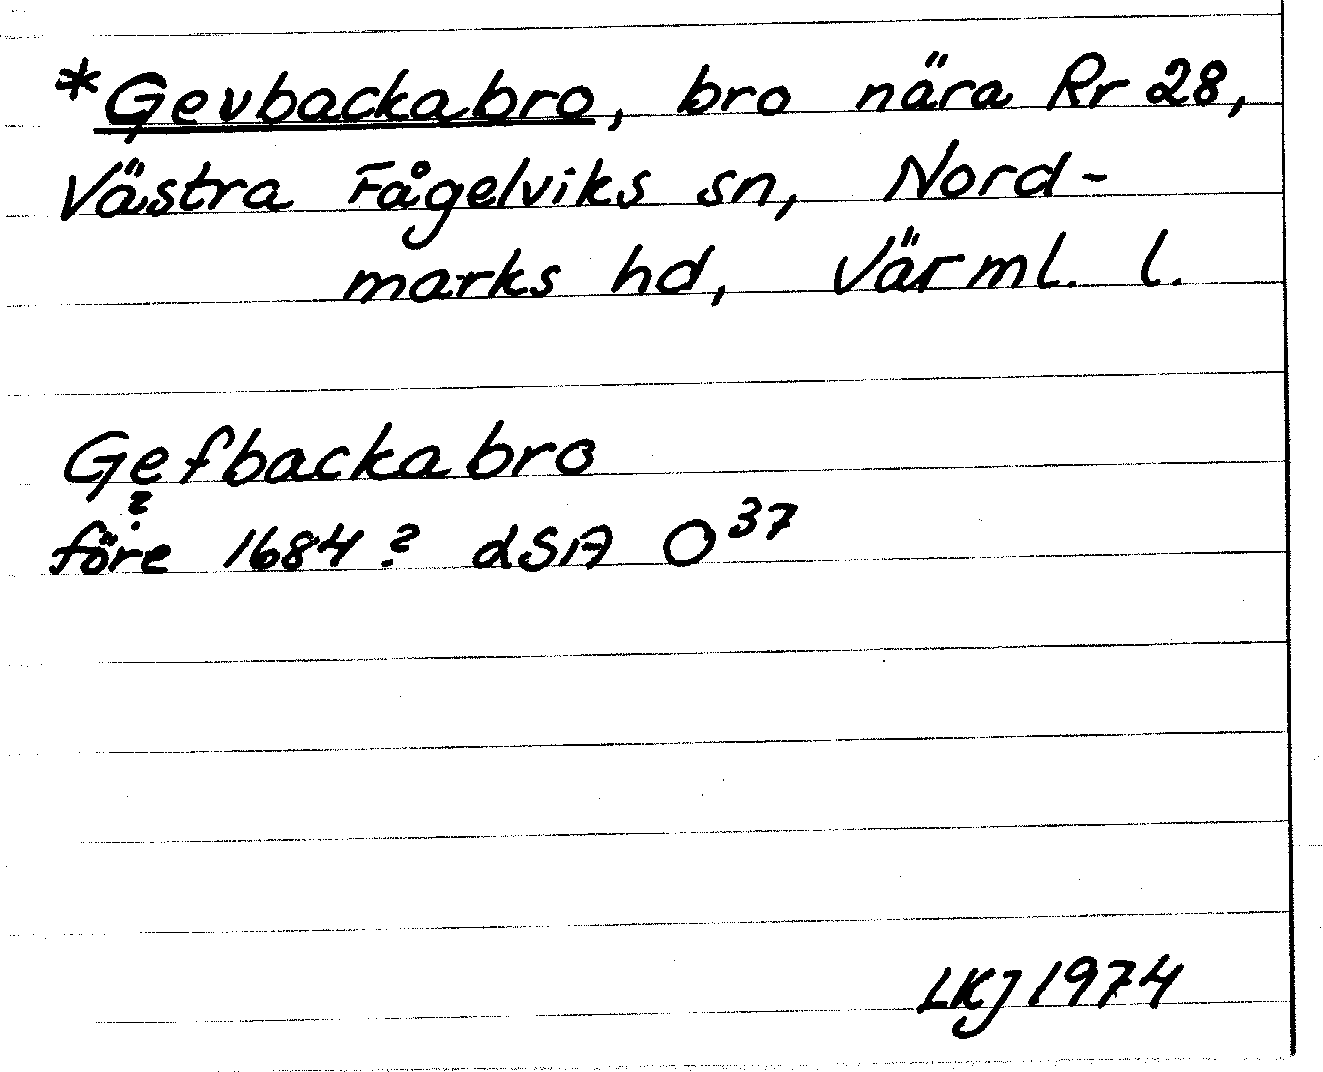 *Gevbackabro, bro nära Rr 28,
Västra Fågelviks sn, Nord-
marks hd, Värml. l.
Gefbackabro
?
före 1684? dSA O³⁷
LKJ 1974